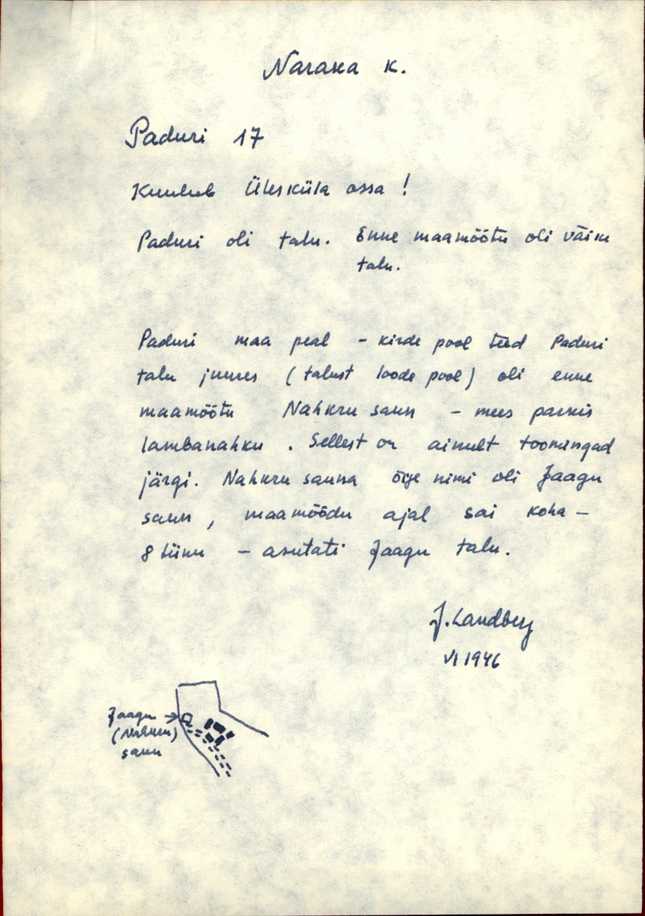 Naraka k.
Paduri 17
Kuulub Ülesküla ossa!
Paduri oli talu. Enne maamõõtu oli väike
talu.
Paduri maa peal – kirde pool teed Paduri
talu juures (talust loode pool) oli enne
maamõõtu Nahkru saun – mees parkis
lambanahku. Sellest on ainult toomingad
järgi. Nahkru sauna õige nimi oli Jaagu
saun, maamõõdu ajal sai koha –
8 tiinu – asutati Jaagu talu.
J. Landberg
VI 1946
Jaagu
(Nahkru)
saun